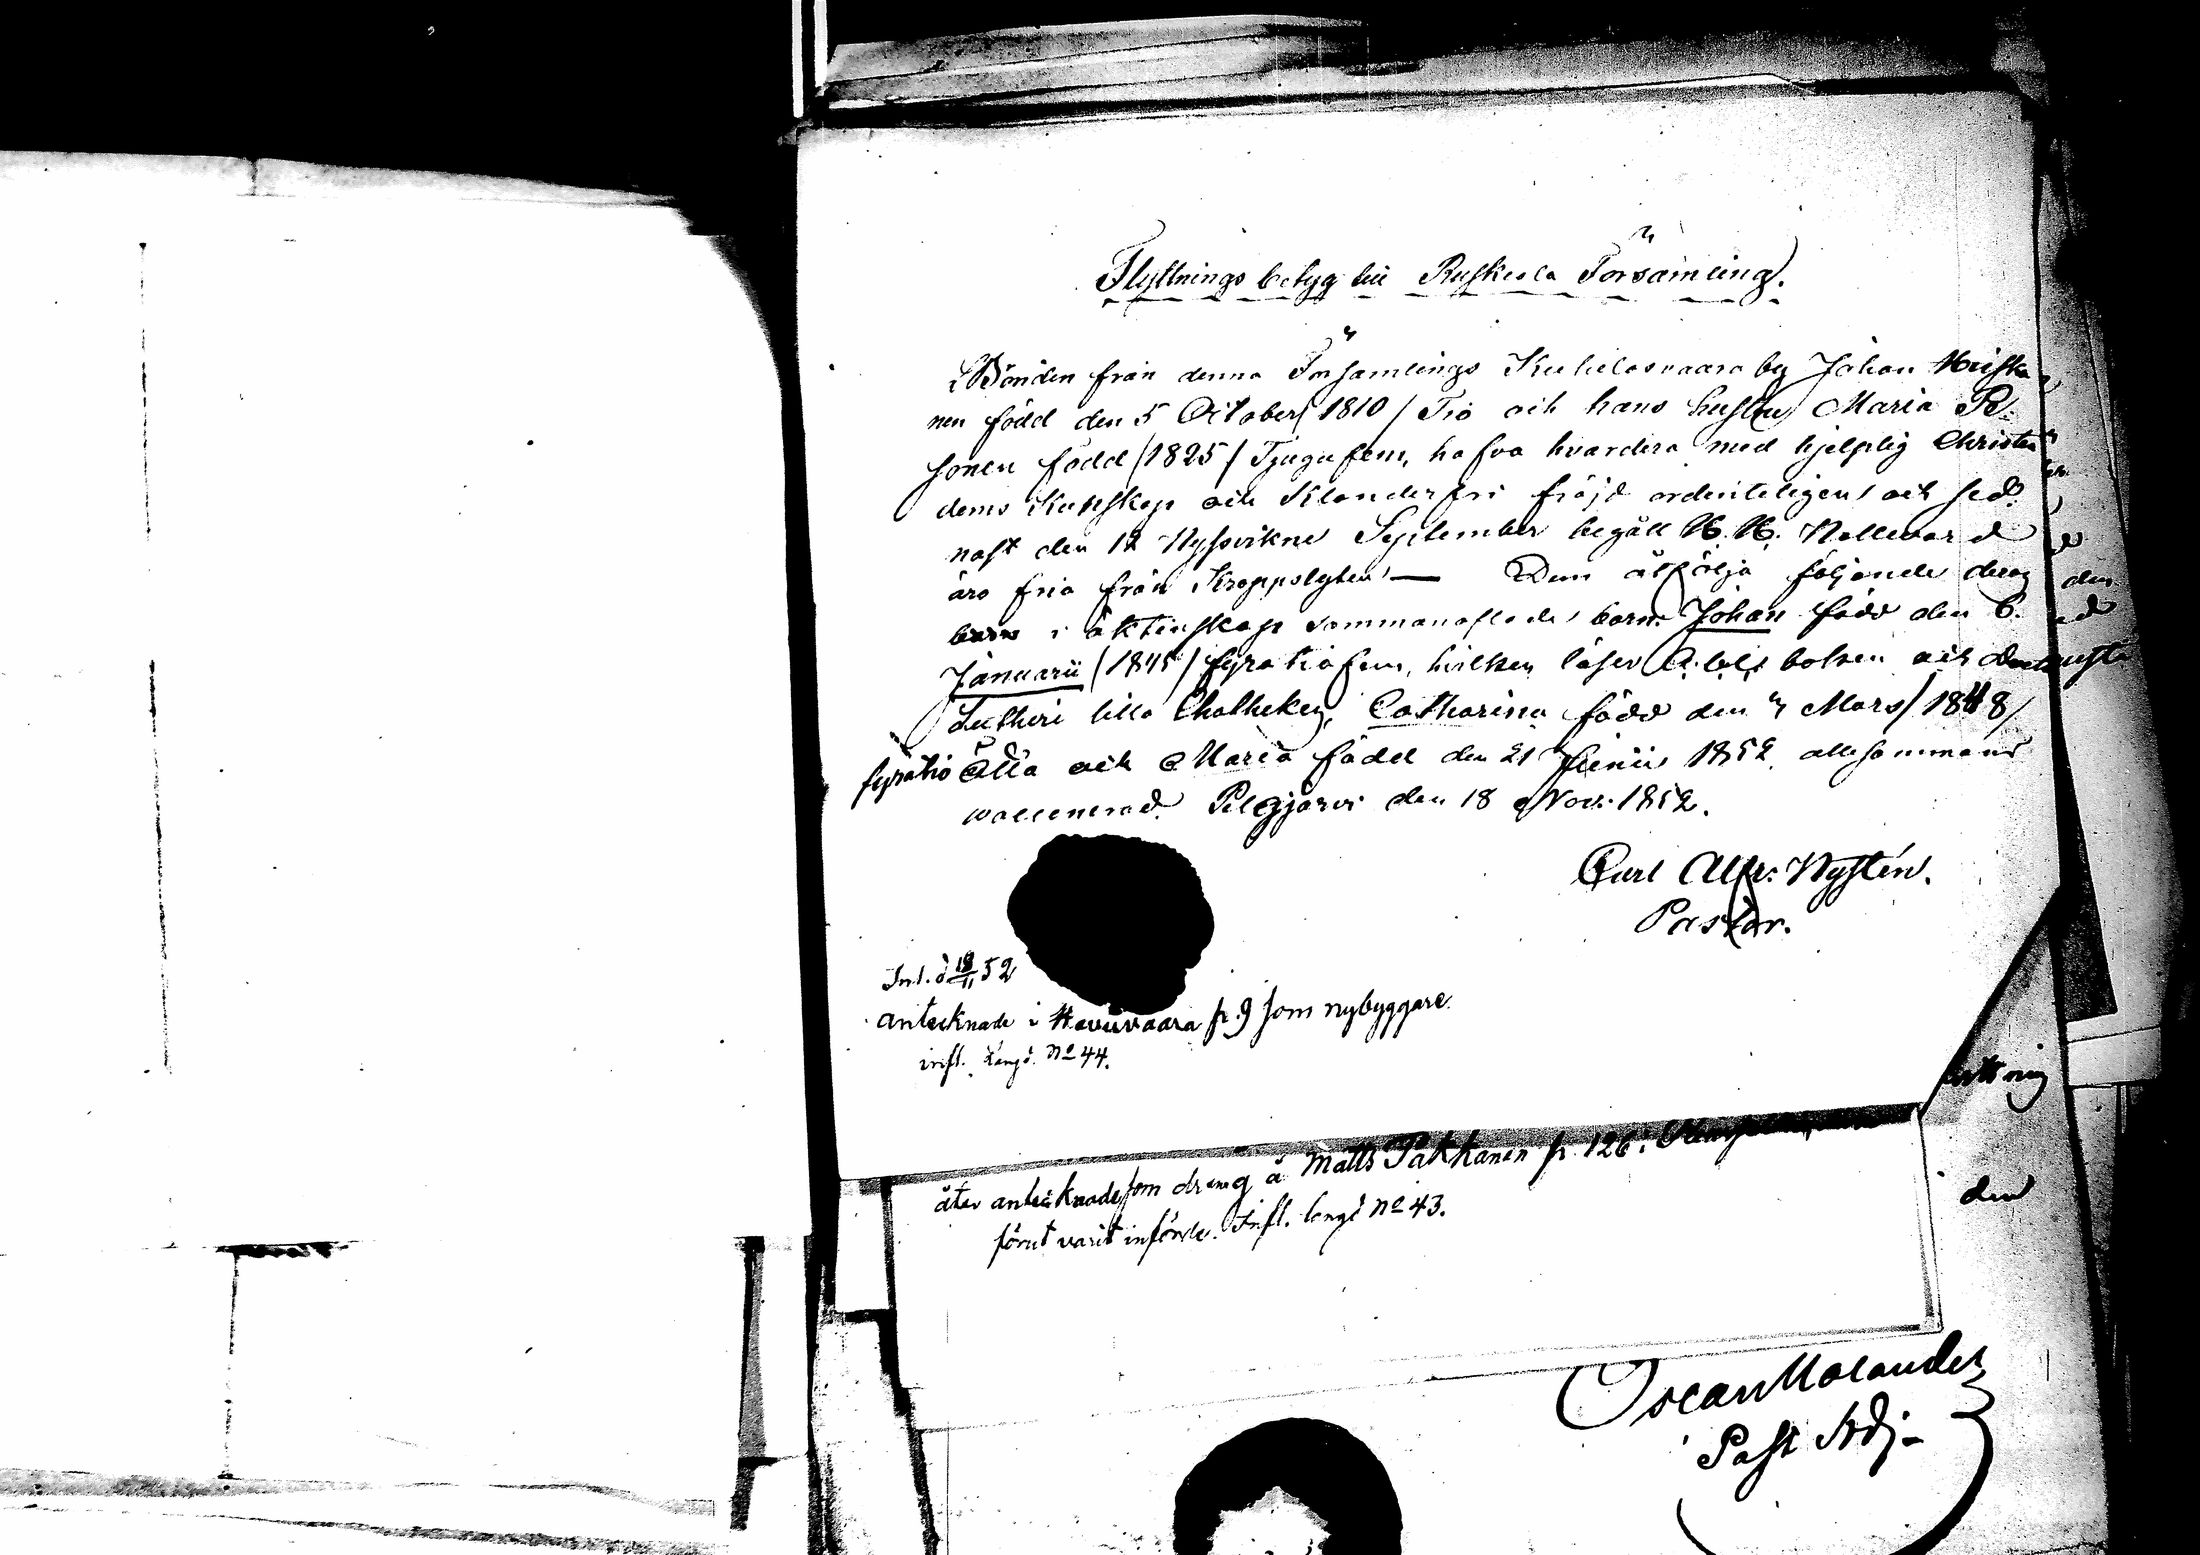 Flyttnings betyg till Ruskiala Församling.
Bonden från denna Församlings Kuhilasvaara by Johan Hiiska
nen född den 5 October / 1810 / Tio och hans hustru Maria Pe
sonen född / 1825 / Tjugufem, hafva hvardera med hjelplig Christen
doms Kunskap och Klanderfri fräjd ordenteligen och sed
nast den 12 Nysvikne September begått H. H. Nattvard
äro fria från Kroppslyten — Dem åtfölja följande deras
i äktenskap sammanaflade barn Johan född den 6.
Januarii / 1845 / fyratiofem, hvilken läser A.b.c. boken och
Lutheri lilla Chatheken, Catharina född den 4 Mars / 1848 /
fyratio åtta och Maria född den 21 Junii 1852 allesammans
vaccinerad. Pelgjärvi den 18 Nov. 1852.
Carl Alfr: Nystén.
Pastor.
Inl. d 18/11 52
antecknade i Havuvaara p. 9 som nybyggare
infl. Längd. No 44.
åter antecknade som dräng å Matts Pakkanen p. 126.
förut varit införde. Infl. längd No 43.
den
Oscar Molander
Past Adj-